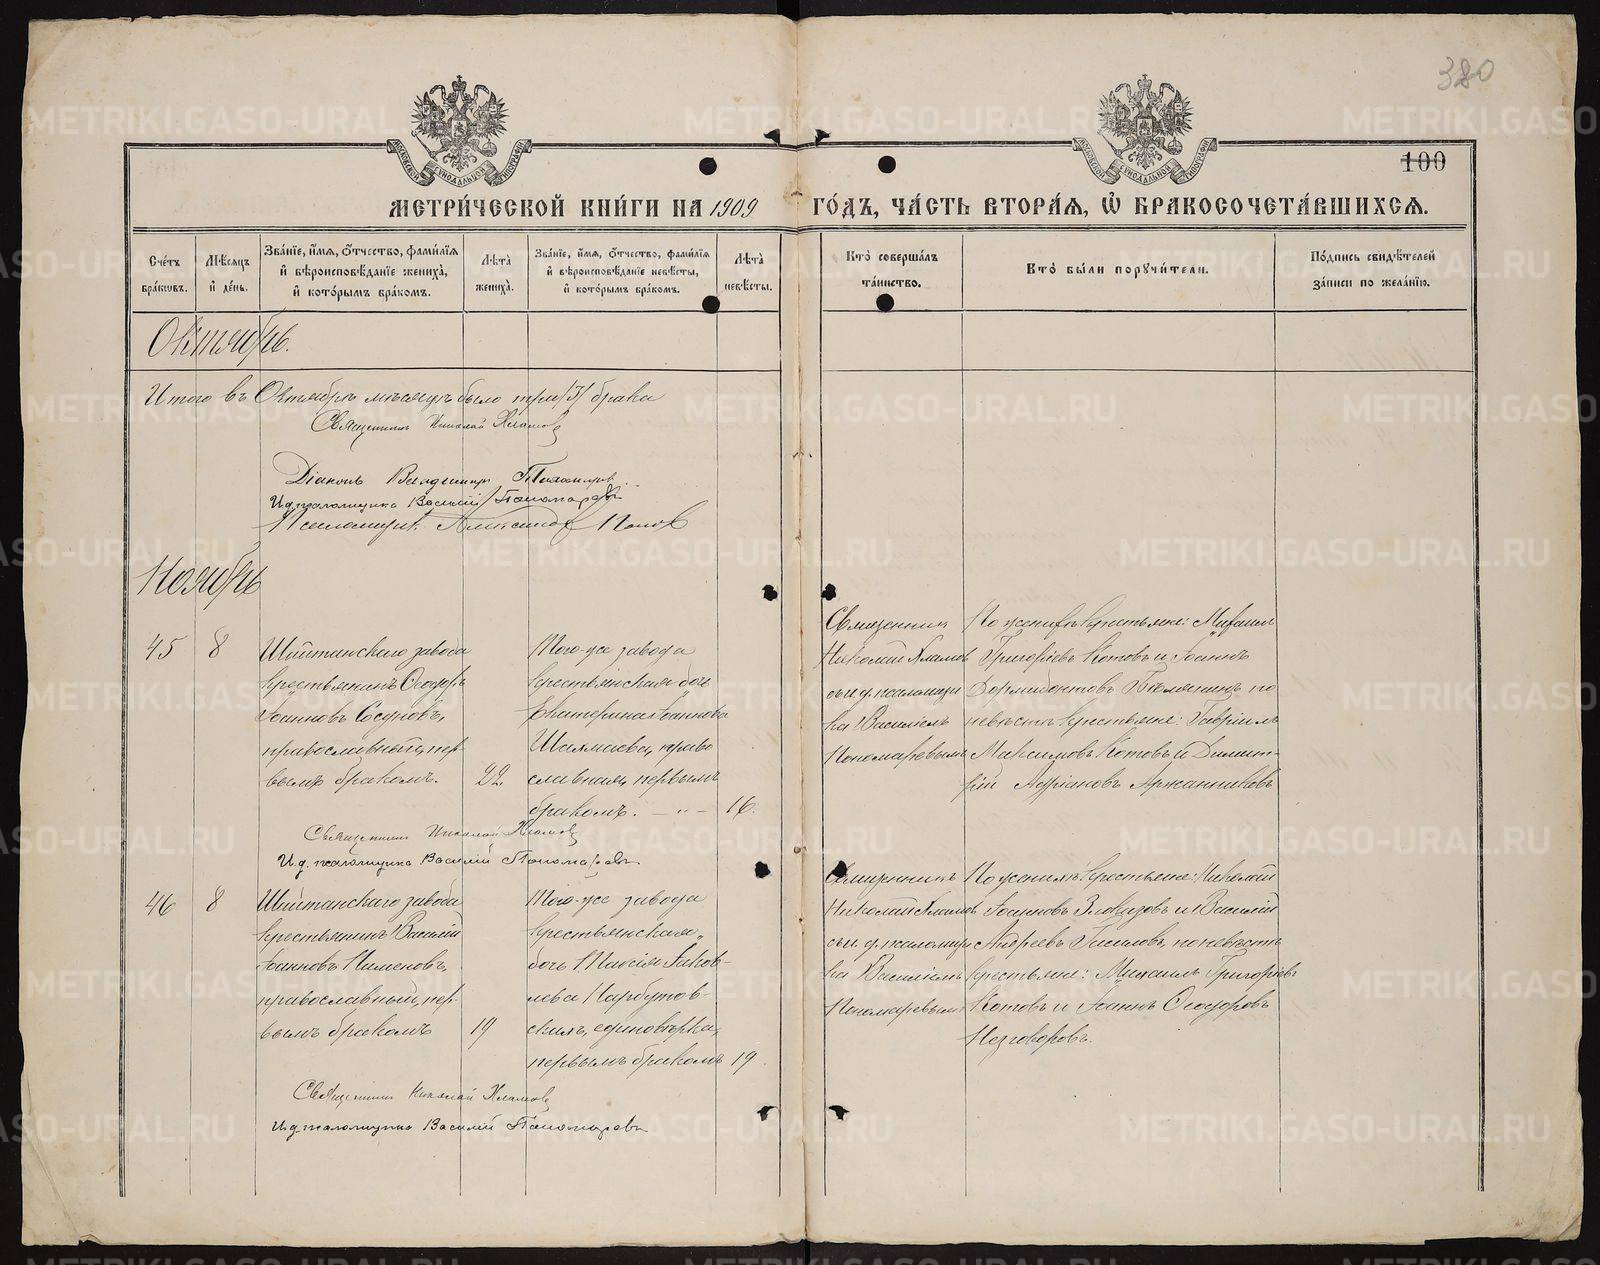 380
100
МЕТРИ́ЧЕСКОЙ КНИ́ГИ НА 1909 ГО́ДЪ, ЧА́СТЬ ВТОРА́Я, Ѡ҆ БРАКОСОЧЕТА́ВШИХСЯ.
Сче́тъ бра́кѡвъ.
Мѣ́сяцъ и҆ де́нь.
Зва́нїе, и҆́мя, ѻ҆́тчество, фами́лїя и҆ вѣроисповѣ́данїе жениха̀, и҆ кото́рымъ бра́комъ.
Лѣта̀ жениха̀.
Зва́нїе, и҆́мя, ѻ҆́тчество, фами́лїя и҆ вѣроисповѣ́данїе невѣ́сты, и҆ кото́рымъ бра́комъ.
Лѣта̀ невѣ́сты.
Кто̀ соверша́лъ та́инство.
Кто̀ бы́ли пору́чители.
По́дпись свидѣ́телей за́писи по жела́нїю.
Октябрь.
Итого въ Октябрѣ мѣсяцѣ было три /3/ брака
Священникъ Николай Хламовъ
Діаконъ Владимиръ
И.д. псаломщика Василій Пономаревъ
Псаломщикъ Александръ Поповъ
Ноябрь
45
8
Шайтанскаго завода
крестьянинъ Ѳеодоръ
Іоанновъ Осуповъ,
православный, пер-
вымъ бракомъ.
22
Того-же завода
крестьянская дочь
Екатерина Іоаннова
Шалмаева, право
славная, первымъ
бракомъ. — „ —
16.
Священникъ
Николай Хламовъ
съ и. д. псаломщи
ка Василіемъ
Пономаревымъ
По женихѣ крестьяне: Михаилъ
Григоріевъ Котовъ и Іоаннъ
Дормидонтовъ по
невѣстѣ крестьяне: Гавріилъ
Максимовъ Котовъ и Димит-
рій Адріановъ Аржанниковъ
Священникъ Николай Хламовъ
И.д. псаломщика Василій Пономаревъ.
46
8
Шайтанскаго завода
крестьянинъ Василій
Іоанновъ Пименовъ,
православный, пер-
вымъ бракомъ
19
Того-же завода
крестьянская
дочь Таисія Іаков-
лева Нарбутов-
скихъ, единовѣрка,
первымъ бракомъ
19.
Священникъ
Николай Хламовъ
съ и. д. псаломщи
ка Василіемъ
Пономаревымъ
По женихѣ крестьяне: Николай
Іоанновъ Злоказовъ и Василій
Андреевъ по невѣстѣ
крестьяне: Михаилъ Григоріевъ
Котовъ и Іоаннъ Ѳеодоровъ
Незговоровъ.
Священникъ Николай Хламовъ
И.д. псаломщика Василій Пономаревъ
METRIKI.GASO-URAL.RU